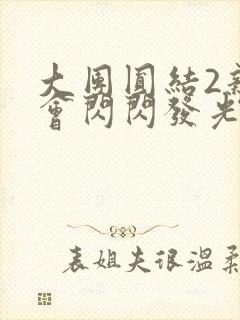 大团圓結2
會閃閃發光
表姐夫很温柔